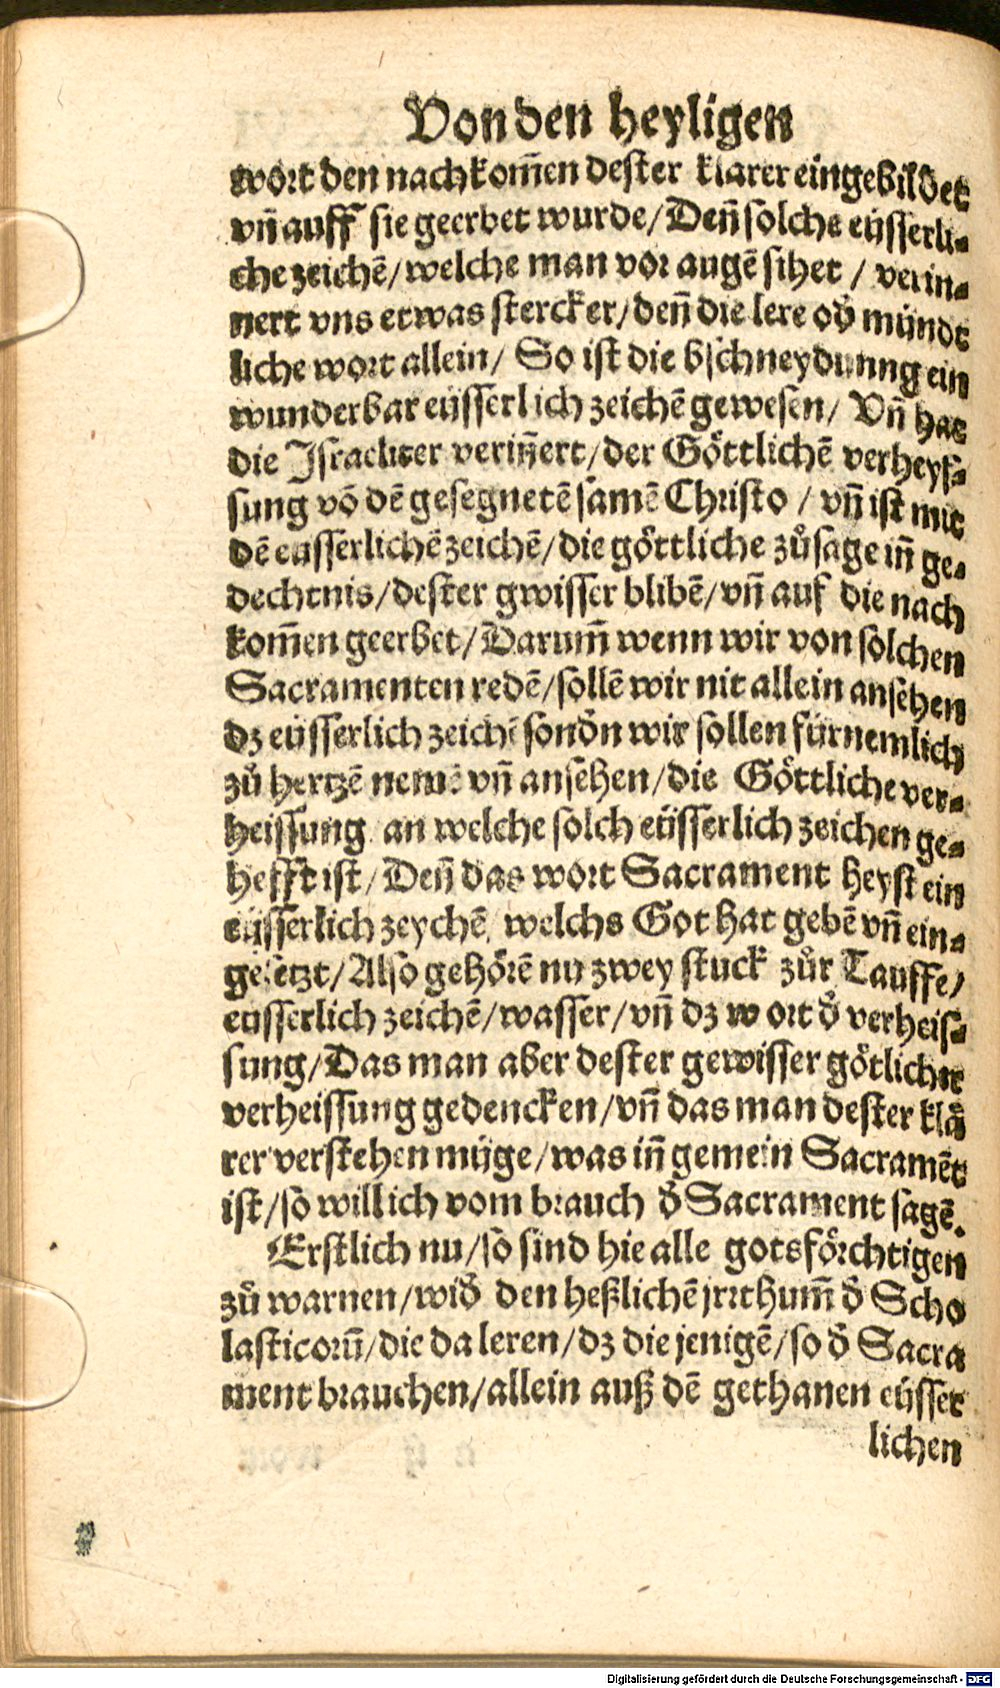 Von den heyligen
wort den nachkom̃en dester klarer eingebildet
vñ auff sie geerbet wurde/ Deñ solche eüsserli⸗
che zeichẽ/ welche man vor augẽ sihet / verin⸗
nert vns etwas stercker/ deñ die lere oď mündt
liche wort allein/ So ist die bschneydunng ein
wunderbar eüsserlich zeichẽ gewesen/ Vñ hat
die Israeliter veriñert/ der Göttlichẽ verheys⸗
sung võ dẽ gesegnetẽ samẽ Christo / vñ ist mit
dẽ eusserlichẽ zeichẽ/ die göttliche zůsage iñ ge⸗
dechtnis/ dester gwisser blibẽ/ vñ auf die nach
kom̃en geerbet/ Darum̃ wenn wir von solchen
Sacramenten redẽ/ sollẽ wir nit allein ansehen
dz eüsserlich zeichẽ sonďn wir sollen fürnemlich
zů hertzẽ nemẽ vñ ansehen/ die Göttliche ver⸗
heissung an welche solch eüsserlich zeichen ge⸗
hefft ist/ Deñ das wort Sacrament heyst ein
eüsserlich zeychẽ, welchs Got hat gebẽ vñ ein⸗
gesetzt/ Also gehörẽ nu zwey stuck zůr Tauffe/
eusserlich zeichẽ/ wasser/ vñ dz wort ď verheis⸗
sung/ Das man aber dester gewisser götlicher
verheissung gedencken/ vñ das man dester klå
rer verstehen müge/ was iñ gemein Sacramẽt
ist/ so will ich vom brauch ď Sacrament sagẽ.
Erstlich nu/ so sind hie alle gotsförchtigen
zů warnen/ wiď den heßlichẽ jrrthum̃ ď Scho
lasticorũ/ die da leren/ dz die jenigẽ/ so ď Sacra
ment brauchen/ allein auß dẽ gethanen eüsser
lichen
Digitalisierung gefördert durch die Deutsche Forschungsgemeinschaft - DFG